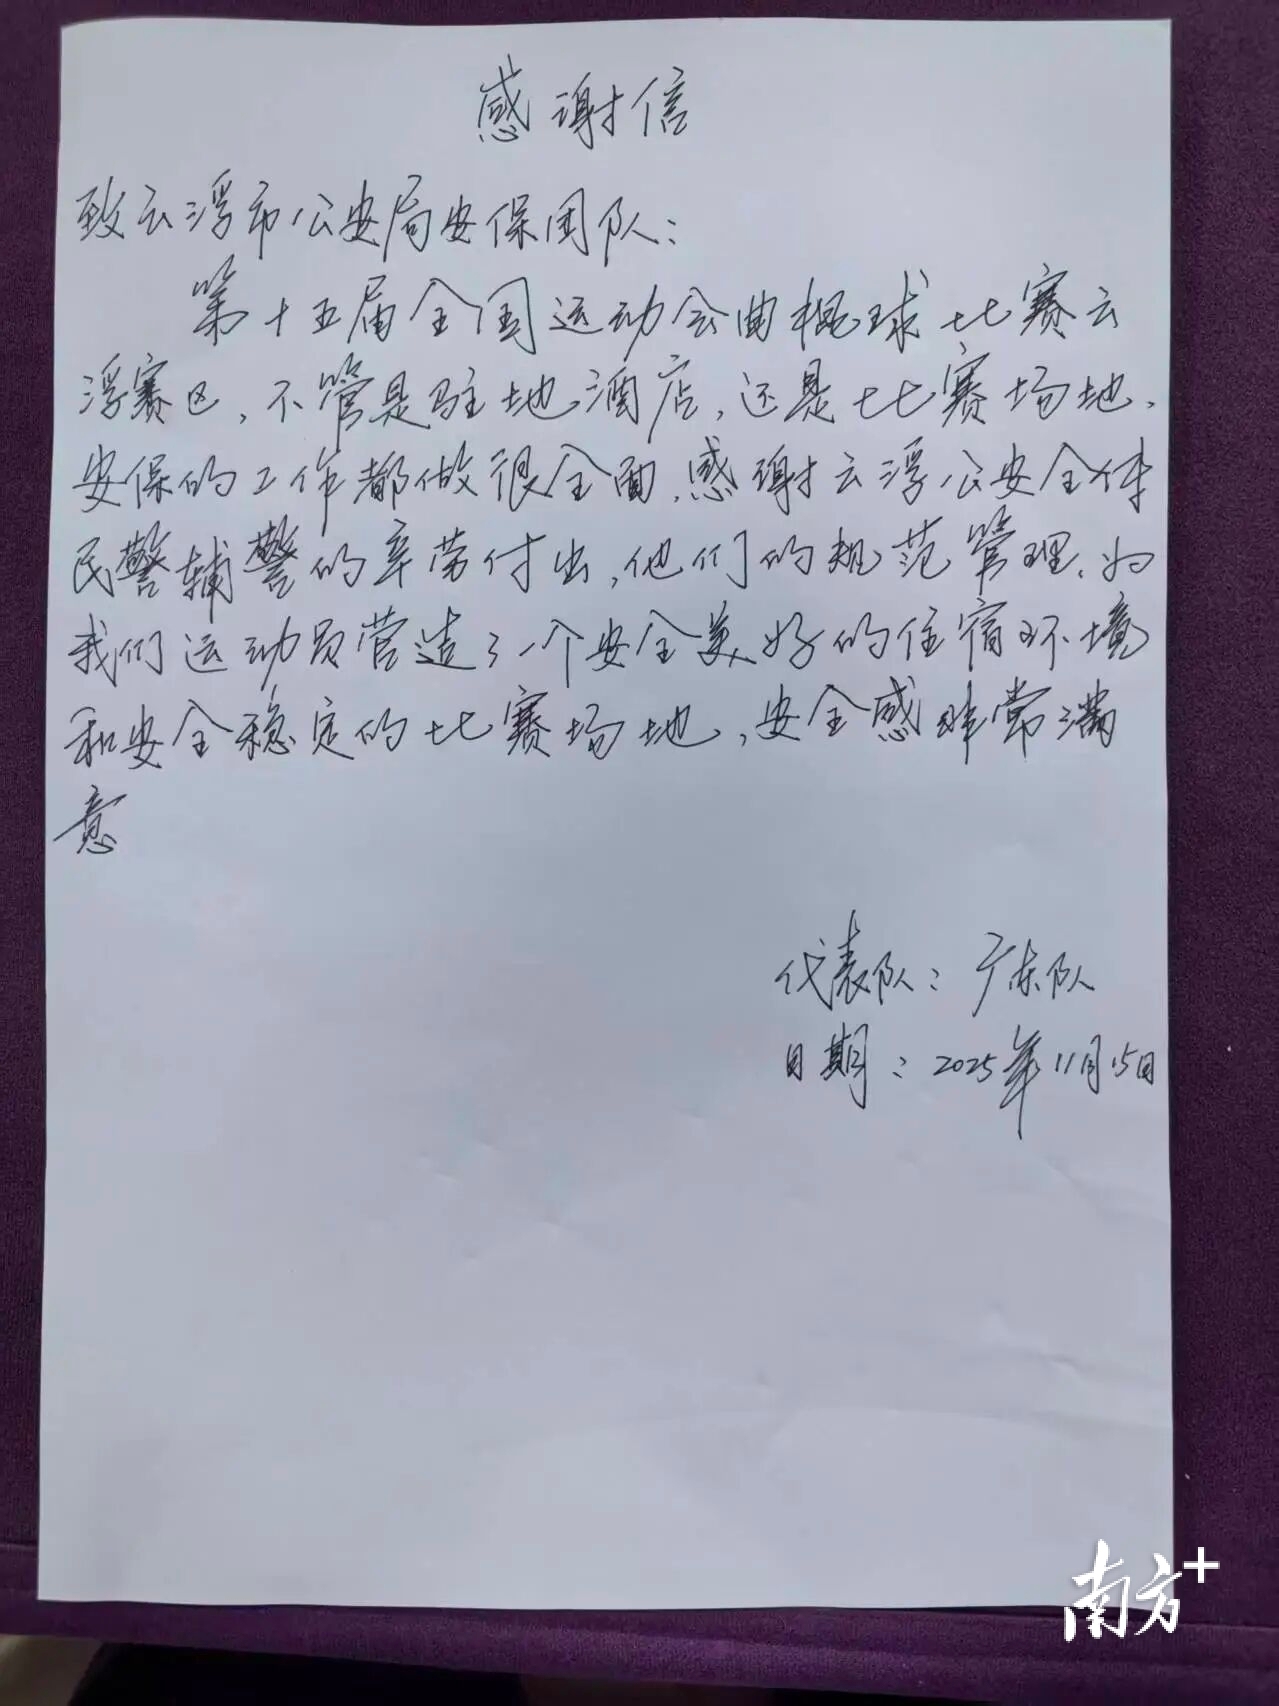 感谢信
致云浮市公安局安保团队:
第十五届全国运动会曲棍球比赛云
浮赛区,不管是驻地酒店,还是比赛场地、
安保的工作都做很全面、感谢云浮公安全体
民警辅警的辛劳付出,他们的规范管理、为
我们运动员营造了一个安全美好的住宿环境
和安全稳定的比赛场地,安全感非常满
意
代表队:广东队
日期:2025年11月15日
南方+